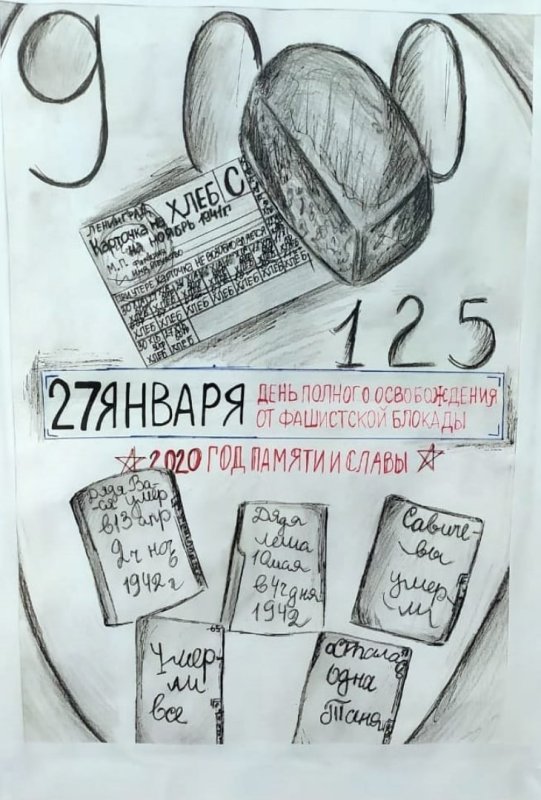 900
ЛЕНИНГРАД
Карточка на ХЛЕБ С
на НОЯБРЬ 1941г.
М.П.
ПРИ УТЕРЕ КАРТОЧКА НЕ ВОЗОБНОВЛЯЕТСЯ
ХЛЕБ ХЛЕБ ХЛЕБ ХЛЕБ ХЛЕБ
ХЛЕБ ХЛЕБ
125
27 ЯНВАРЯ
ДЕНЬ ПОЛНОГО ОСВОБОЖДЕНИЯ
ОТ ФАШИСТСКОЙ БЛОКАДЫ
2020 ГОД ПАМЯТИ И СЛАВЫ
Дядя Ва-
ся умер
в 13 апр
2 ч ноч
1942 г
Дядя
Леша
10 мая
в 4 ч дня
1942
Савиче-
вы
умер-
ли
Умер-
ли
все
Осталась
одна
Таня